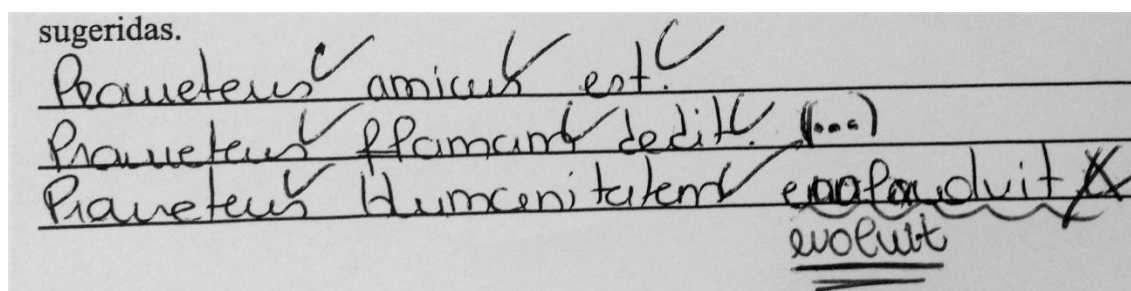 sugeridas.
Prometeus amicus est.
Prometeus flamam dedit. (...)
Prometeus Humanitatem
evoluit